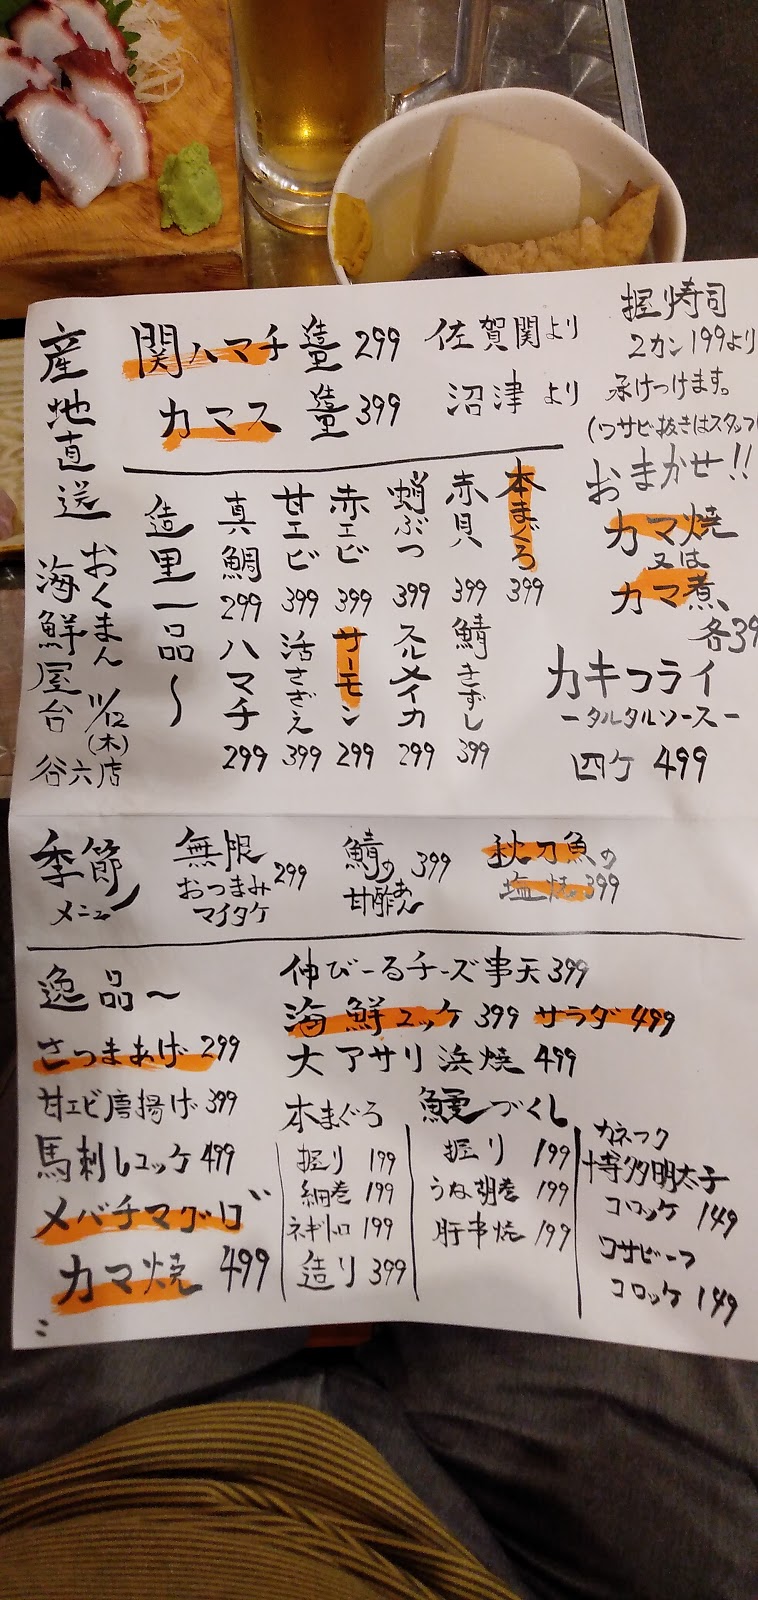 産地直送
関ハマチ 造里 299 佐賀関より
カマス 造里 399 沼津より
握り寿司
2カン199より
承けつけます。
(ワサビ抜きはスタッフ
おまかせ!!
カマ焼
又は
カマ煮、
各39
カキフライ
ータルタルソースー
四ケ 499
本まぐろ 399
赤貝 399
蛸ぶつ 399
赤エビ 399
甘エビ 399
真鯛 299
造里一品〜
鯖きずし 399
スルメイカ 299
サーモン 299
活さざえ 399
ハマチ 299
おくまん 11/12(木)
海鮮屋台 谷六店
季節メニュー
無限おつまみマイタケ 299
鯖の甘酢あん 399
秋刀魚の塩焼 399
逸品〜
伸びーるチーズ串天 399
海鮮ユッケ 399 サラダ 499
大アサリ浜焼 499
さつまあげ 299
甘エビ唐揚げ 399
馬刺しユッケ 499
メバチマグロ
カマ焼 499
本まぐろ
握り 199
細巻 199
ネギトロ 199
造り 399
鰻づくし
握り 199
うな胡巻 199
肝串焼 199
カネフク
博多明太子
コロッケ 149
ワサビーフ
コロッケ 149